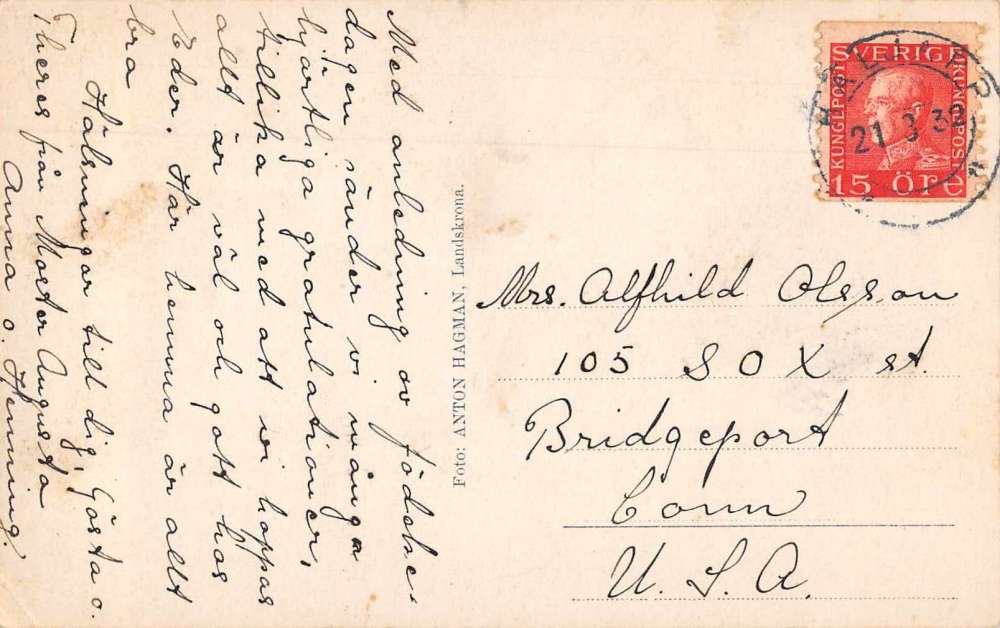 Med anledning av födelse-
dagen sänder vi många
hjärtliga gratulationer,
tillika med att vi hoppas
allt är väl och gott hos
Eder. Här hemma är allt
bra
Hälsningar till dig, Gösta o.
Theres från Moster Augusta
Anna o. Henning.
Foto: ANTON HAGMAN, Landskrona.
SVERIGE
KUNGL POST
KUNGL POST
15 ÖRE
21 3 32
Mrs. Alfhild Olsson
105 SOX st.
Bridgeport
Conn
U.S.A.